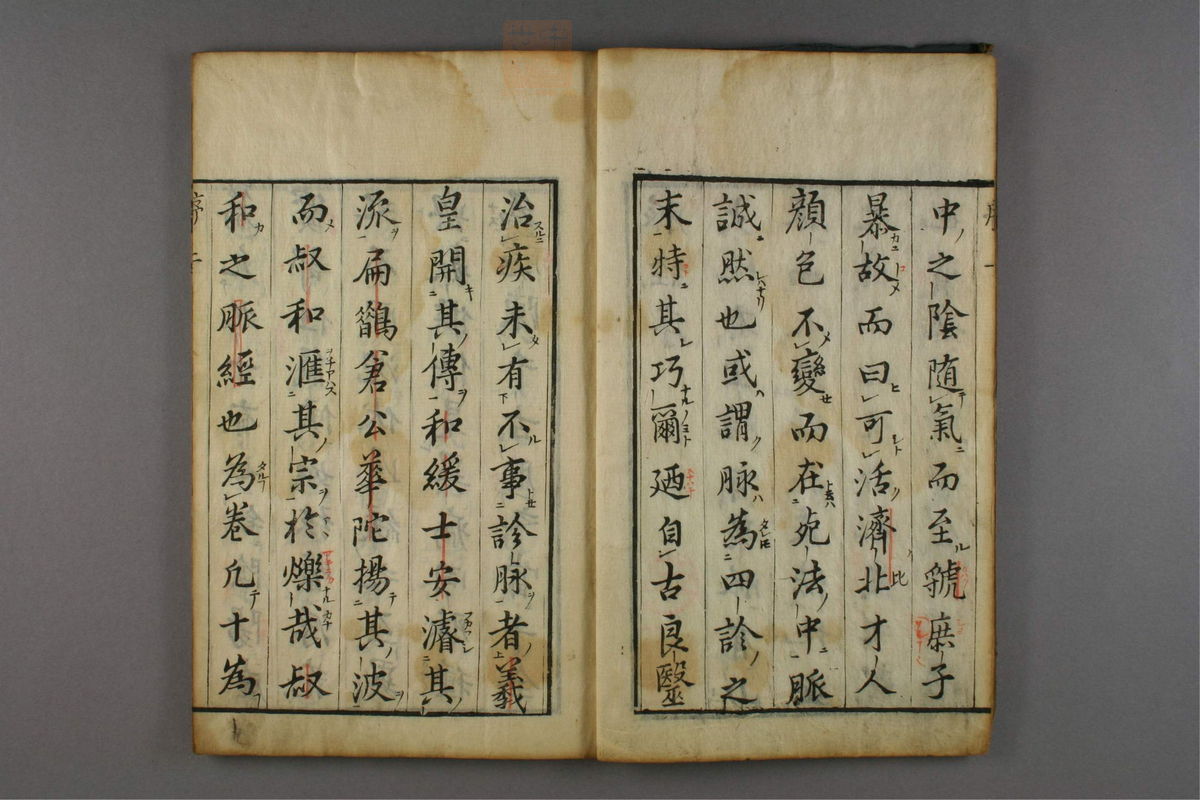 中之陰隨氣而至虢庶子
暴故而曰可活濟北才人
顏色不變而在死法中脈
誠然也或謂脉為四診之
末特其巧爾廼自古良毉
治疾未有不事診脉者羲
皇開其傳和緩士安濬其
派扁鵲倉公華陀揚其波
而叔和滙其宗於爍哉叔
和之脈經也為卷凡十為